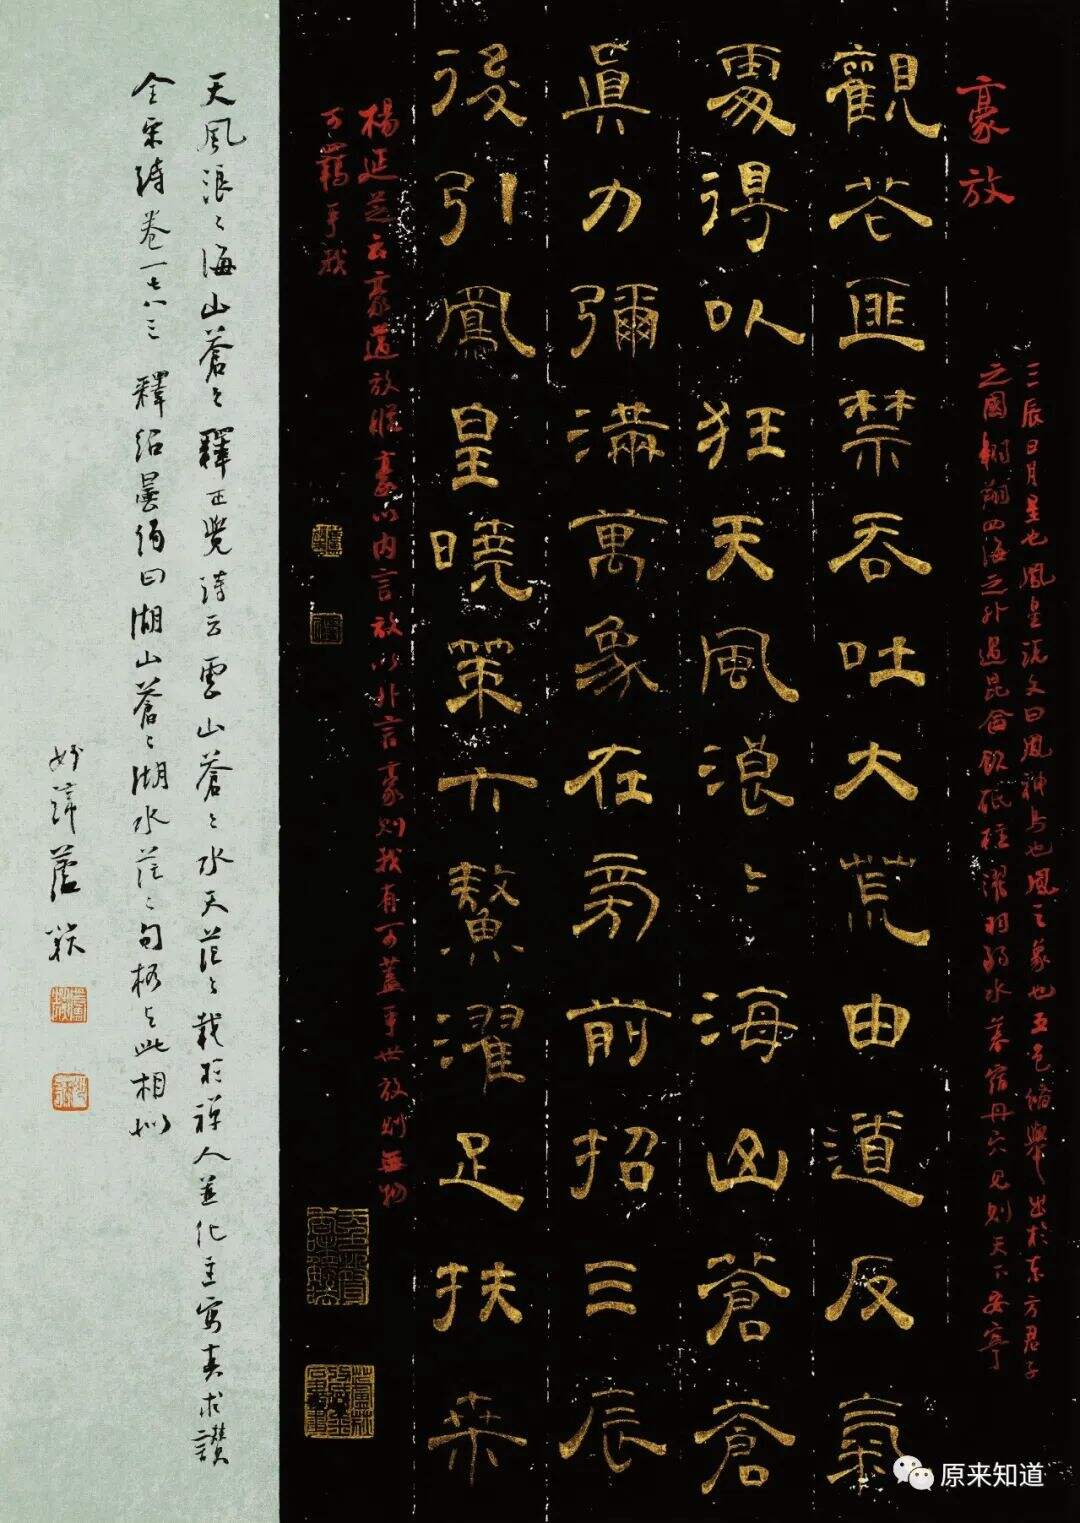 豪放
三辰日月星也鳳皇說文曰鳳神鳥也鳳之象也五色備舉出於東方君子
之國翱翔四海之外過昆侖飲砥柱濯羽弱水暮宿丹穴見則天下安寧
觀花匪禁吞吐大荒由道反氣
處得以狂天風浪〻海山蒼蒼
眞力彌滿萬象在旁前招三辰
後引鳳皇曉策六鰲濯足扶桒
楊廷芝云豪邁放縱豪以內言放以外言豪則我有可蓋乎世放則無物
可羈乎我
天風浪〻海山蒼〻釋正覺詩云雲山蒼〻水天茫〻載於禪人並化主寫真求讚
全宋詩卷一七八三釋紹曇偈曰湖山蒼〻湖水茫〻句格與此相似
原来知道